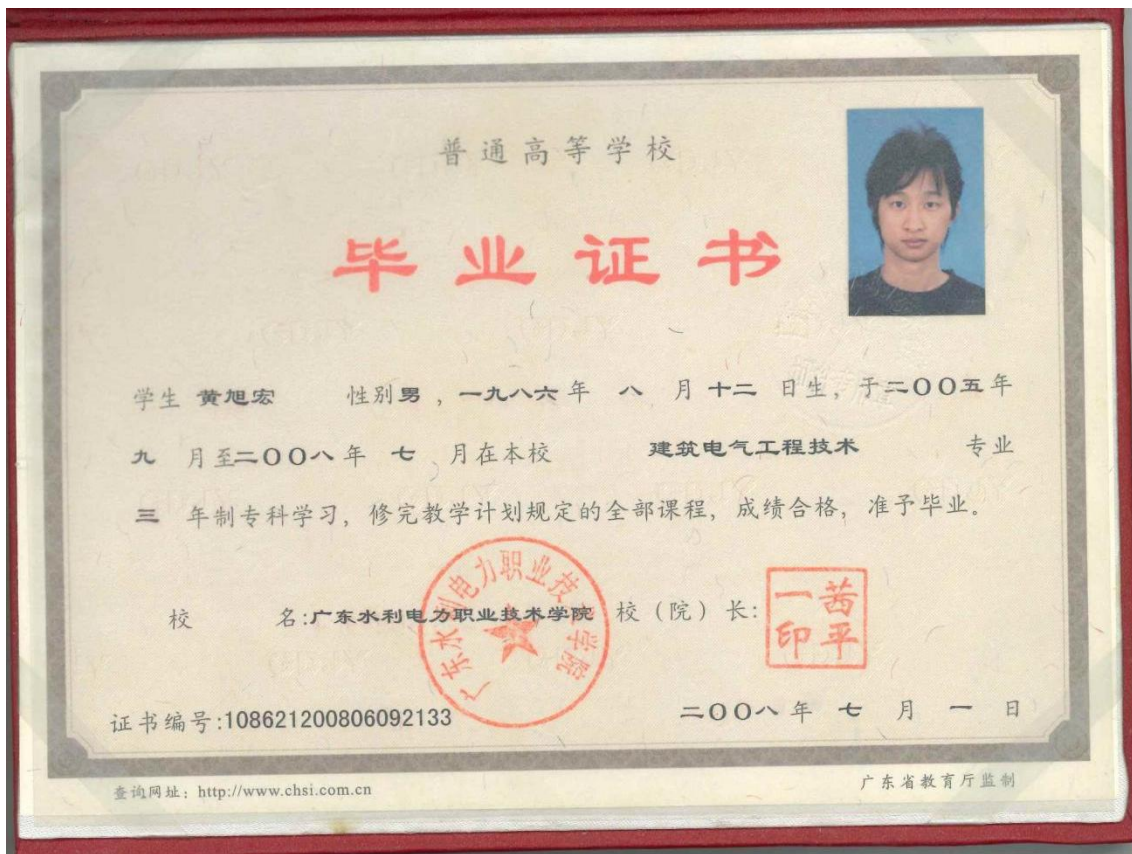 普通高等学校
毕业证书
学生 黄旭宏 性别男，一九八六年 八 月 十二 日生，于二〇〇五年
九 月至二〇〇八年 七 月在本校 建筑电气工程技术 专业
三 年制专科学习，修完教学计划规定的全部课程，成绩合格，准予毕业。
校 名:广东水利电力职业技术学院 校（院）长:
广东水利电力职业技术学院
茜平
一印
证书编号:108621200806092133
二〇〇八年 七 月 一 日
查询网址：http://www.chsi.com.cn
广东省教育厅监制